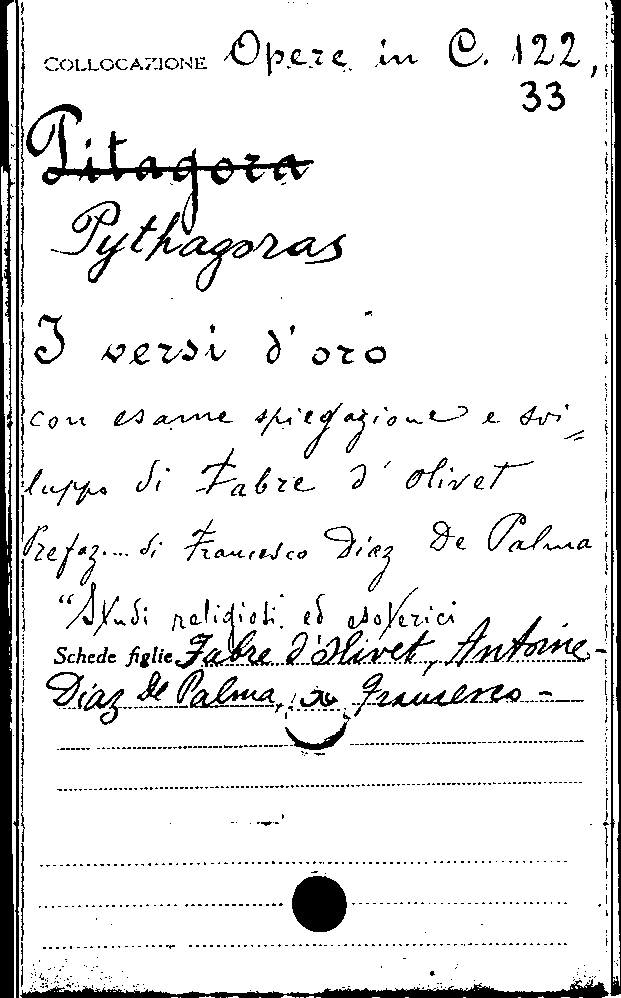 COLLOCAZIONE Opere in C. 122,
33
Pitagora
Pythagoras
I versi d'oro
con esame spiegazione e svi=
luppo di Fabre d'Olivet
Prefaz... di Francesco Diaz De Palma
"Studi religiosi ed esoterici
Schede figlie Fabre d'Olivet, Antoine-
Diaz De Palma, Francesco -